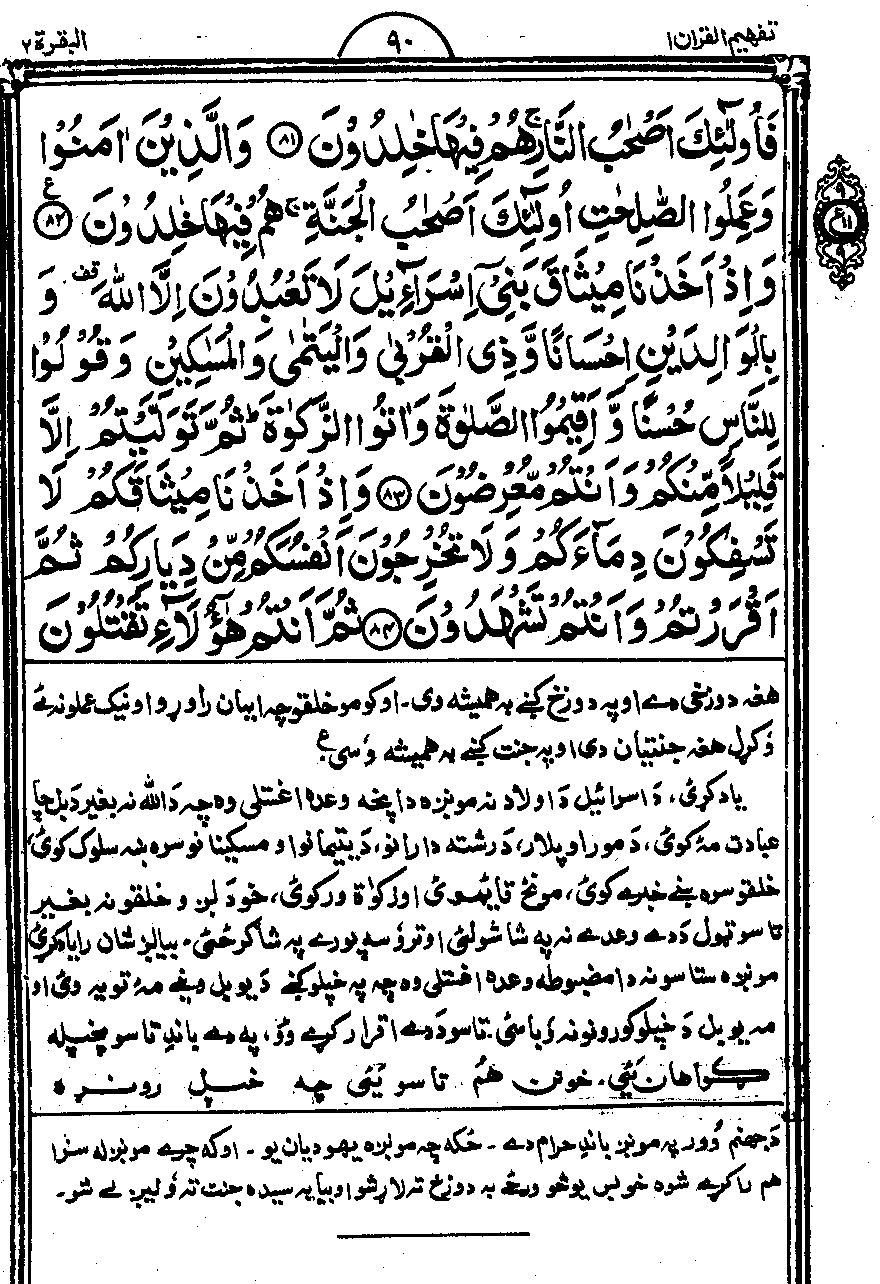 تفهیم القرآن ۱
۹۰
البقرة ۲
فَاُولٰٓئِكَ اَصْحٰبُ النَّارِ ۚ هُمْ فِيْهَا خٰلِدُوْنَ ﴿۸۱﴾ وَالَّذِيْنَ اٰمَنُوْا
وَعَمِلُوا الصّٰلِحٰتِ اُولٰٓئِكَ اَصْحٰبُ الْجَنَّةِ ۚ هُمْ فِيْهَا خٰلِدُوْنَ ﴿۸۲﴾ ع
وَاِذْ اَخَذْنَا مِيْثَاقَ بَنِيْٓ اِسْرَآءِيْلَ لَا تَعْبُدُوْنَ اِلَّا اللّٰهَ قف وَ
بِالْوَالِدَيْنِ اِحْسَانًا وَّذِی الْقُرْبٰى وَالْيَتٰمٰى وَالْمَسٰكِيْنِ وَقُوْلُوْا
لِلنَّاسِ حُسْنًا وَّاَقِيْمُوا الصَّلٰوةَ وَاٰتُوا الزَّكٰوةَ ؕ ثُمَّ تَوَلَّيْتُمْ اِلَّا
قَلِيْلًا مِّنْكُمْ وَاَنْتُمْ مُّعْرِضُوْنَ ﴿۸۳﴾ وَاِذْ اَخَذْنَا مِيْثَاقَكُمْ لَا
تَسْفِكُوْنَ دِمَآءَكُمْ وَلَا تُخْرِجُوْنَ اَنْفُسَكُمْ مِّنْ دِيَارِكُمْ ثُمَّ
اَقْرَرْتُمْ وَاَنْتُمْ تَشْهَدُوْنَ ﴿۸۴﴾ ثُمَّ اَنْتُمْ هٰٓؤُلَآءِ تَقْتُلُوْنَ
هغه دوزخی دے او په دوزخ کښے به همیشه وی۔ او کومو خلقو چه ایمان راوړو او نیک عملونه ئے
وُکړل هغه جنتیان دی او په جنت کښے به همیشه وُسی ع
یاد کړئ، دَ اسرائیل دَ اولاد نه مونږه دا پخه وعده اغستلی وه چه دَ الله نه بغیر دَ بل چا
عبادت مۀ کوئ، دَ مور او پلار، دَ رشته دارانو، دَ یتیمانو او مسکینانو سره ښه سلوک کوئ،
خلقو سره ښے خبرے کوئ، مونځ قایموئ او زکوٰة ورکوئ، خو دَ لږو خلقو نه بغیر
تاسو ټول دَ دے وعدے نه په شا شولئ او تر اوسه پورے په شا ګرځئ۔ بیا لږ شان رایاد کړئ
مونږه ستاسو نه دا مضبوطه وعده اغستلی وه چه په خپلو کښے دَ یو بل وینے مۀ تویوئ او
مه یو بل دَ خپلو کورونو نه وُباسئ۔ تاسو دَ دے اقرار کړے وُو، په دے باندِ تاسو پخپله
ګواهان یئی۔ خو نن هم تاسو یئی چه خپل روڼره
دَ جهنم اُور په مونږ باندِ حرام دے۔ ځکه چه مونږه یهودیان یو۔ او که چرے مونږ له سزا
هم راکړے شوه خو بس یو څو ورځے به دوزخ ته لاړ شو او بیا به سیده جنت ته وُلیږلے شو۔